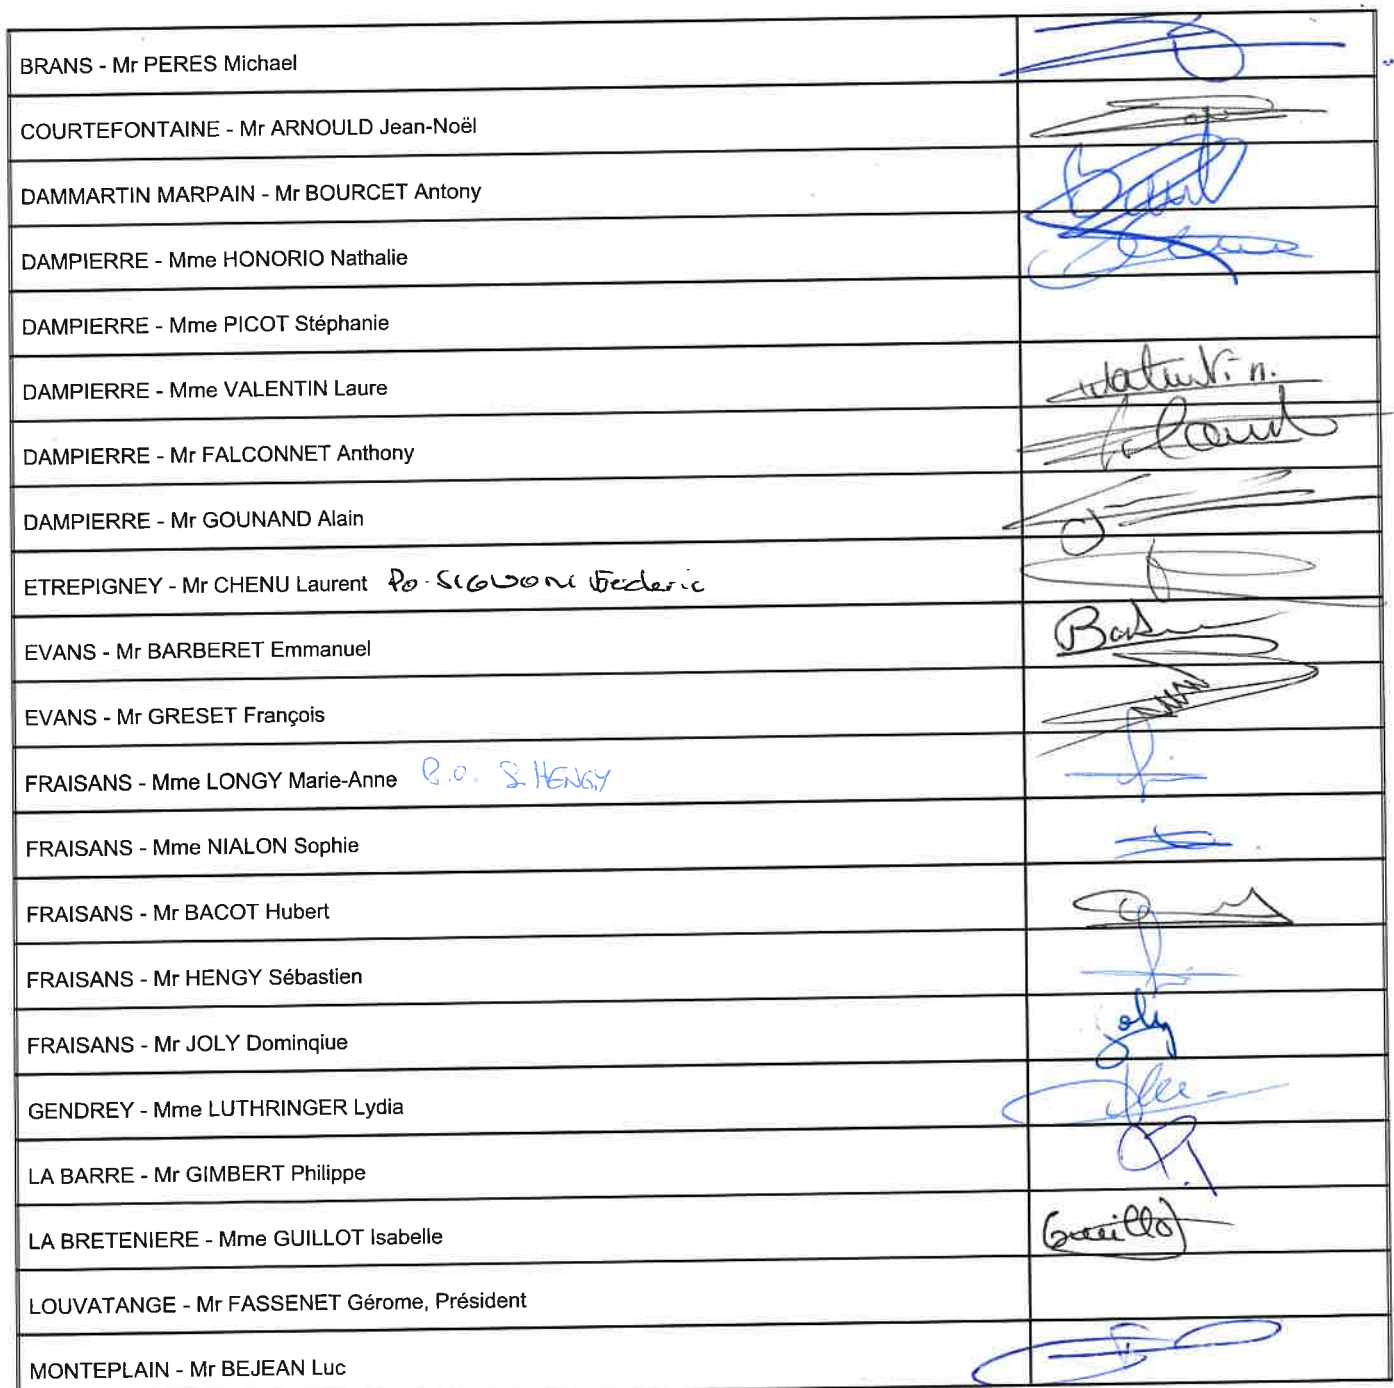 BRANS - Mr PERES Michael
COURTEFONTAINE - Mr ARNOULD Jean-Noël
DAMMARTIN MARPAIN - Mr BOURCET Antony
DAMPIERRE - Mme HONORIO Nathalie
DAMPIERRE - Mme PICOT Stéphanie
DAMPIERRE - Mme VALENTIN Laure
DAMPIERRE - Mr FALCONNET Anthony
DAMPIERRE - Mr GOUNAND Alain
ETREPIGNEY - Mr CHENU Laurent Po
EVANS - Mr BARBERET Emmanuel
EVANS - Mr GRESET François
FRAISANS - Mme LONGY Marie-Anne P.O. S. HENGY
FRAISANS - Mme NIALON Sophie
FRAISANS - Mr BACOT Hubert
FRAISANS - Mr HENGY Sébastien
FRAISANS - Mr JOLY Dominqiue Joly
GENDREY - Mme LUTHRINGER Lydia
LA BARRE - Mr GIMBERT Philippe
LA BRETENIERE - Mme GUILLOT Isabelle Guillot
LOUVATANGE - Mr FASSENET Gérome, Président
MONTEPLAIN - Mr BEJEAN Luc